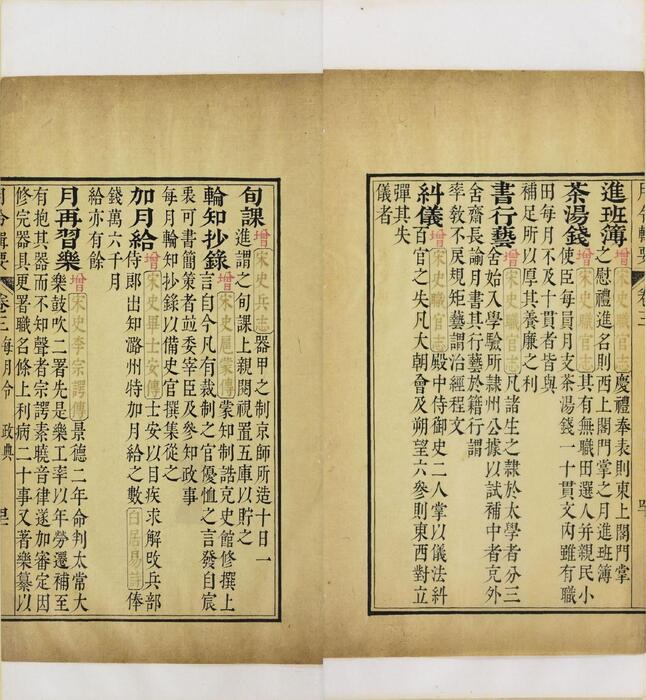 月令輯要 卷三
進班簿 增宋史職官志慶禮奉表則東上閤門掌
之慰禮進名則西上閤門掌之月進班簿
茶湯錢 增宋史職官志其有無職田選人并親民小
使臣每員月支茶湯錢一十貫文內雖有職
田每月不及十貫者皆與
補足所以厚其養廉之利
書行藝 增宋史職官志凡諸生之隸於太學者分三
舍始入學驗所隸州公據以試補中者充外
舍齋長諭月書其行藝於籍行謂
率敎不戾規矩藝謂治經程文
糾儀 增宋史職官志殿中侍御史二人掌以儀法糾
百官之失凡大朝會及朔望六參則東西對立
彈其失
儀者
旬課 增宋史兵志器甲之制京師所造十日一
進謂之旬課上親閱視置五庫以貯之
輪知抄錄 增宋史扈蒙傳蒙知制誥充史館修撰上
言自今凡有裁制之官優恤之言發自宸
衷可書簡策者並委宰臣及參知政事
每月輪知抄錄以備史官撰集從之
加月給 增宋史畢士安傳士安以目疾求解改兵部
侍郎出知潞州特加月給之數白居易詩俸
錢萬六千月
給亦有餘
月再習樂 增宋史李宗諤傳景德二年命判太常大
樂鼓吹二署先是樂工率以年勞遷補至
有抱其器而不知聲者宗諤素曉音律遂加審定因
修完器具更署職名條上利病二十事又著樂纂以
月令輯要 卷三 每月令 政典